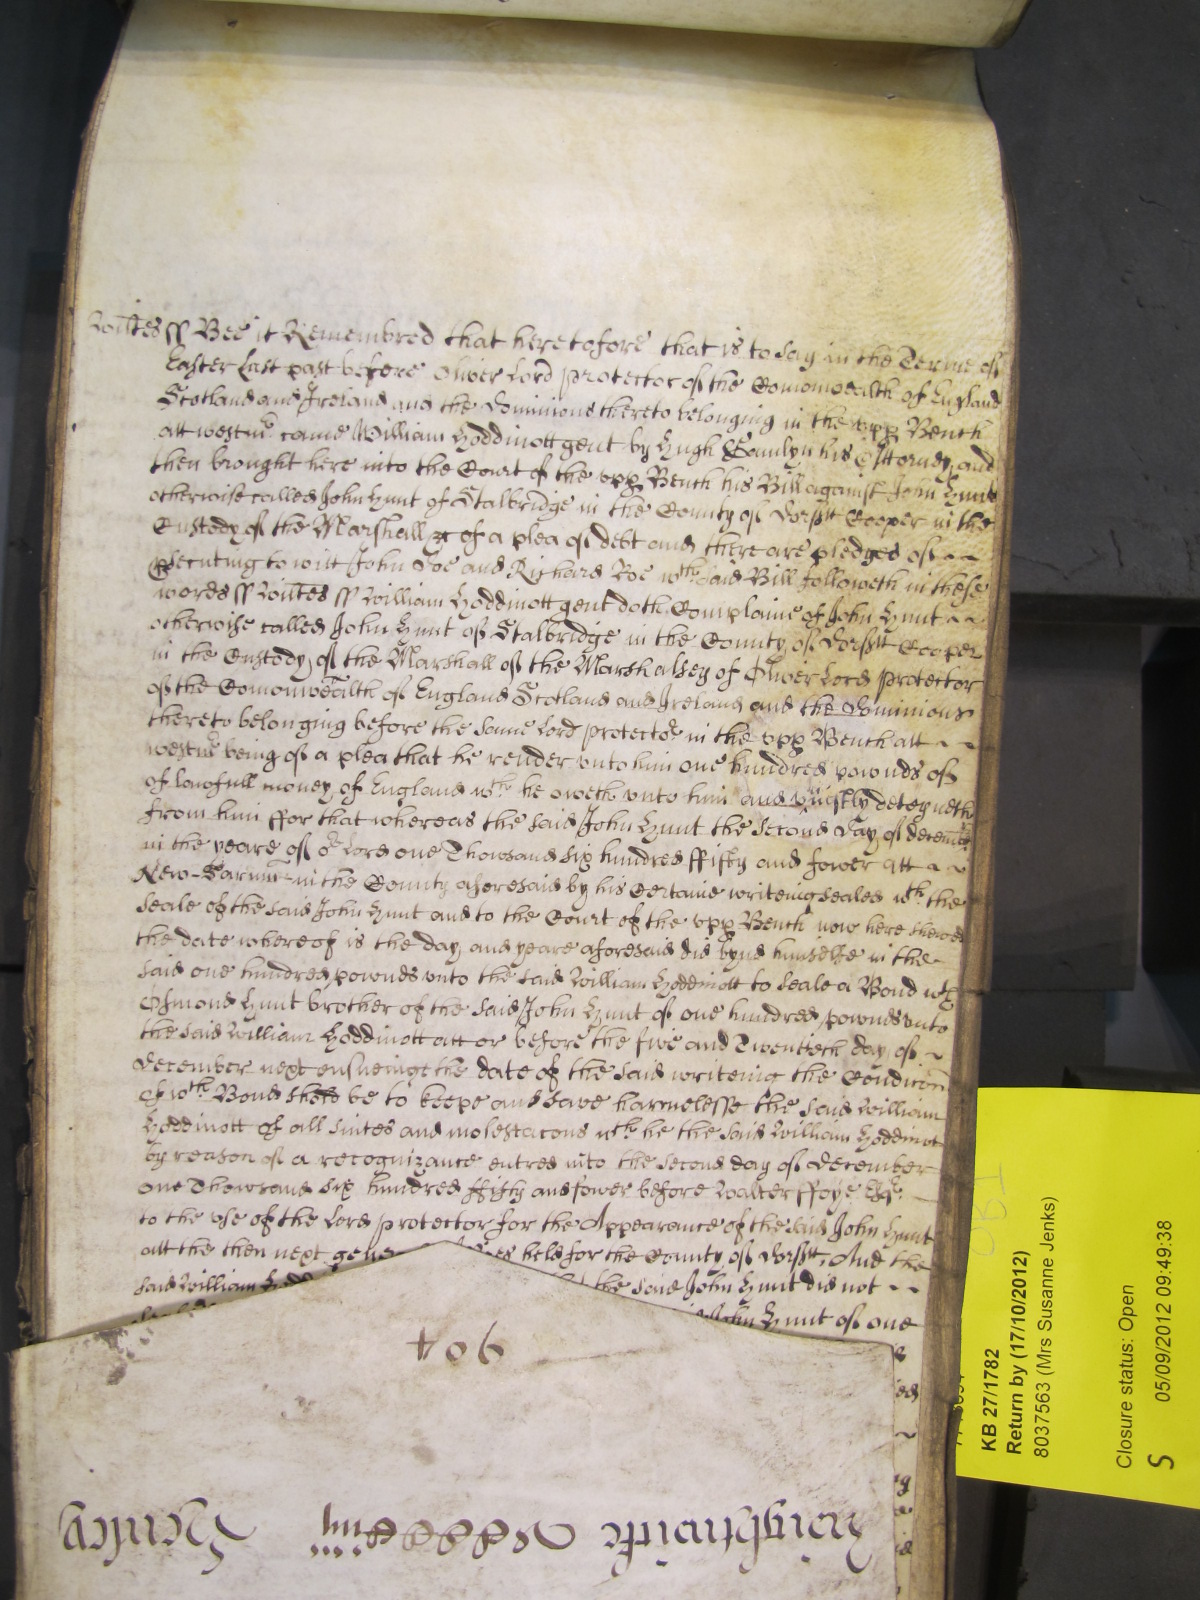 Wiltes ss Bee it Remembred that heretofore that is to say in the Terme of
Easter Last past before Oliver Lord protector of the Comonwealth of England
Scotland and Ireland and the dominions thereto belonging in the upp Bench
att westmr came William Hoddinott gent by Hugh Hamlyn his Attorney and
then brought here into the Court of the upp Bench his Bill against John Hunt
otherwise called John Hunt of Stalbridge in the County of Dorsett Cooper in the
Custody of the Marshall &c of a plea of debt and there are pledges of
psecuting to witt John Doe and Richard Roe wch said Bill followeth in these
words ss Wiltes ss William Hoddinott gent doth Complaine of John Hunt
otherwise called John Hunt of Stalbridge in the County of Dorsett Cooper
in the Custody of the Marshall of the Marshalsey of Oliver Lord protector
of the Comonwealth of England Scotland and Ireland and the dominions
thereto belonging before the same Lord protector in the upp Bench att
westmr being of a plea that he render unto him one hundred pownds of
of lawfull money of England wch he oweth unto him and uniustly deteyneth
from him ffor that whereas the said John Hunt the second day of decembr
in the yeare of or Lord one Thowsand six hundred ffifty and fower att
New-Sarum in the County aforesaid by his Certaine writeing sealed wth the
seale of the said John Hunt and to the Court of the upp Bench now here shewed
the date whereof is the day and yeare aforesaid did bynd himselfe in the
said one hundred pownds unto the said William Hoddinott to seale a Bond wth
Osmond Hunt brother of the said John Hunt of one hundred pownds unto
the said William Hoddinott att or before the five and Twentieth day of
december next ensueinge the date of the said writeing the Condicon
of wch Bond should be to keepe and save harmelesse the said William
Hoddinott of all suites and molestacons wch he the said William Hoddinott
by reason of a recognizance entred into the second day of december
one Thowsand six hundred ffifty and fower before Walter ffoye Esqr
to the use of the Lord protector for the Appearance of the said John Hunt
att the then next held for the County of Dorsett, And the
said William the said John Hunt did not
John Hunt of one
904
Wightwicke Henley
KB 27/1782
Return by (17/10/2012)
8037563 (Mrs Susanne Jenks)
Closure status: Open
S 05/09/2012 09:49:38